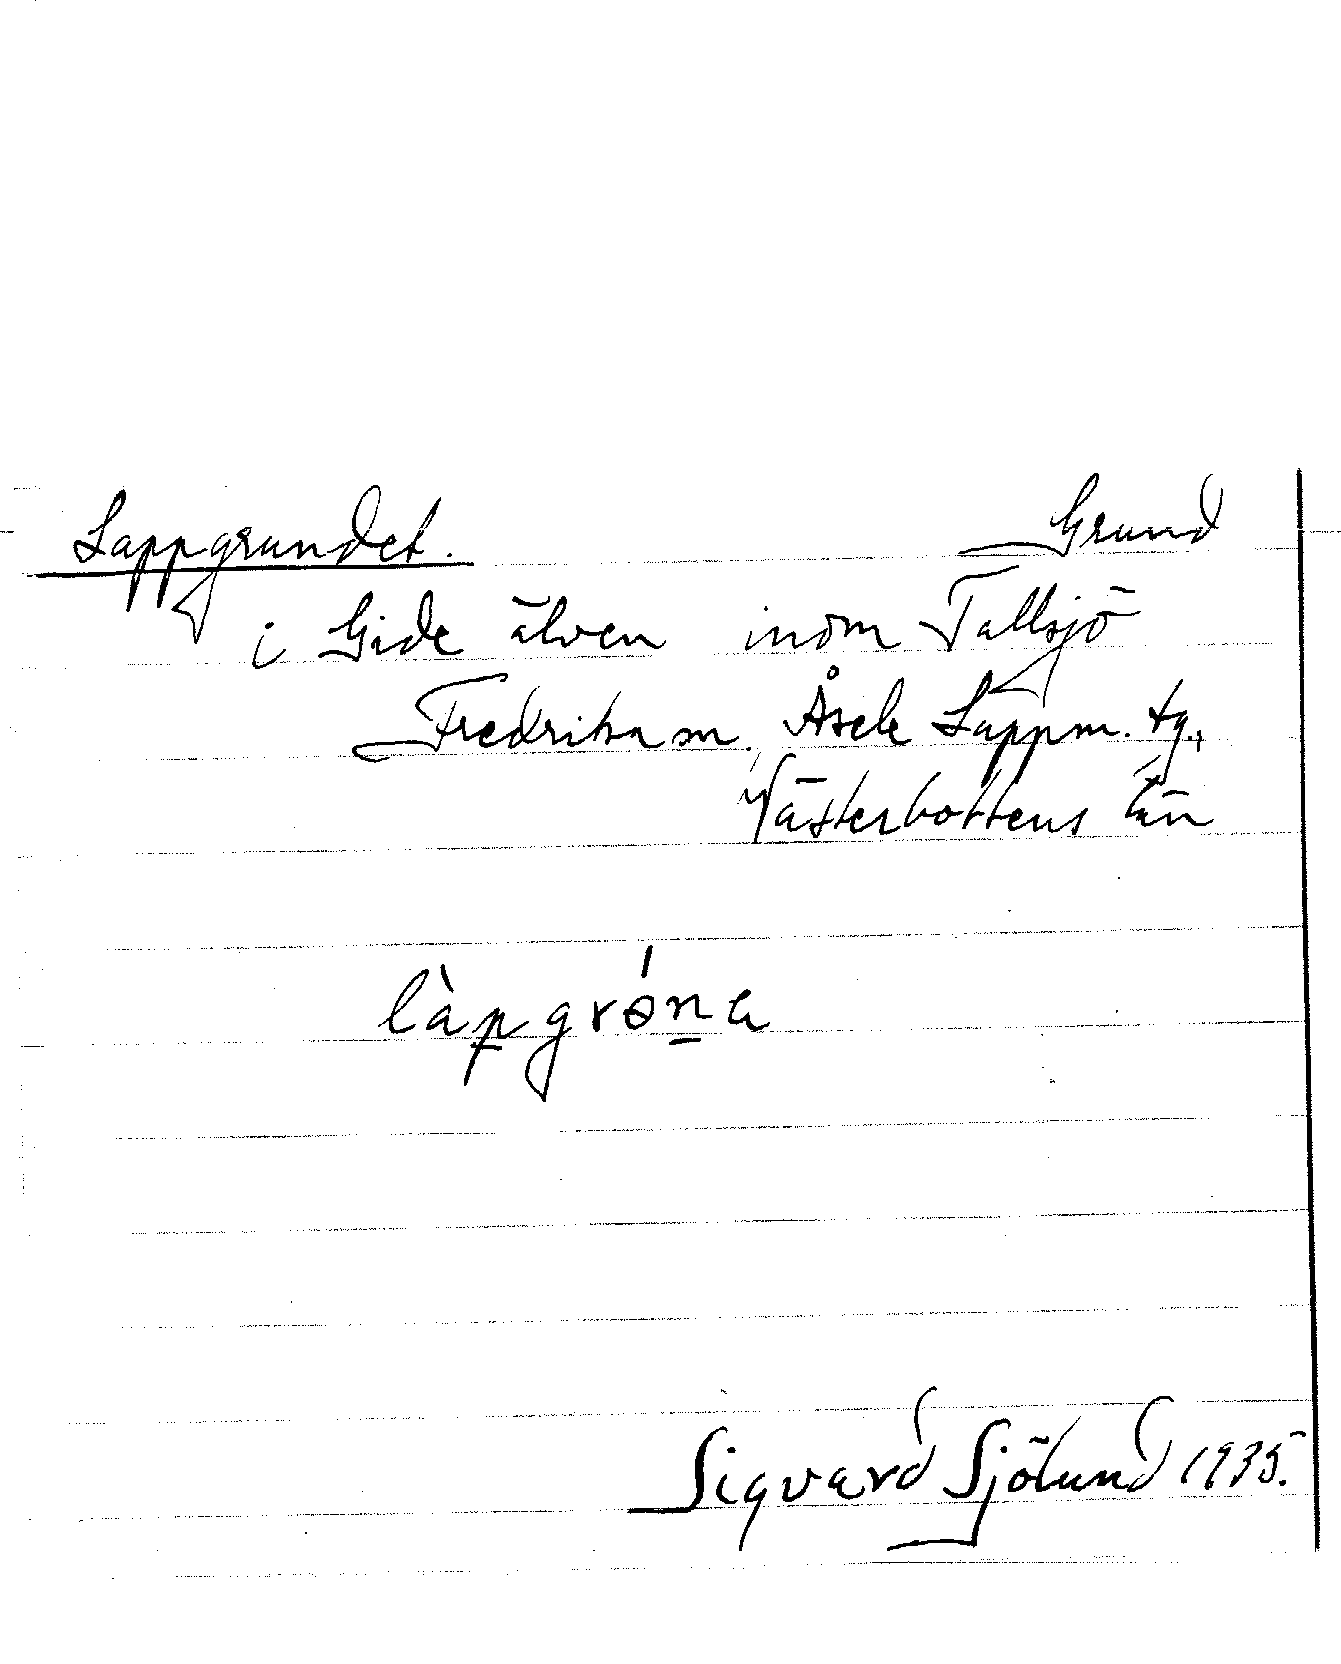 Lappgrundet. Grund
i Gide älven inom Tallsjö
Fredrika sn. Åsele Lappm. tg.,
Västerbottens län
làpgróna
Sigvard Sjölund 1935.